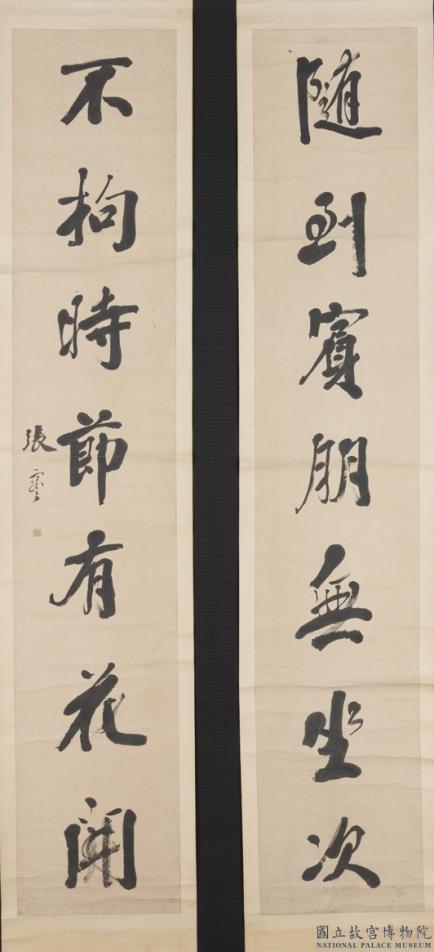 隨到賓朋無坐次
不拘時節有花開
張
國立故宮博物院
NATIONAL PALACE MUSEUM